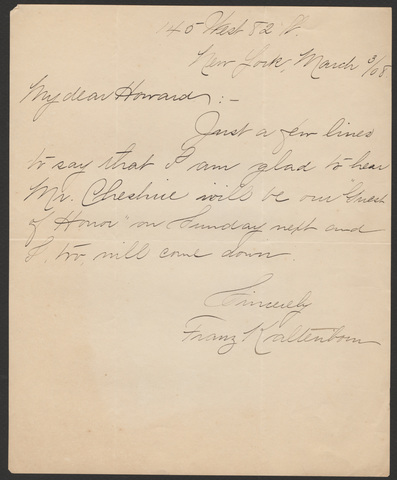 145 West 82 St.
New York, March 3/08
My dear Howard :-
Just a few lines
to say that I am glad to hear
Mr. Cheshire will be our "Guest
of Honor" on Sunday next and
I, too, will come down.
Sincerely
Franz Kaltenborn